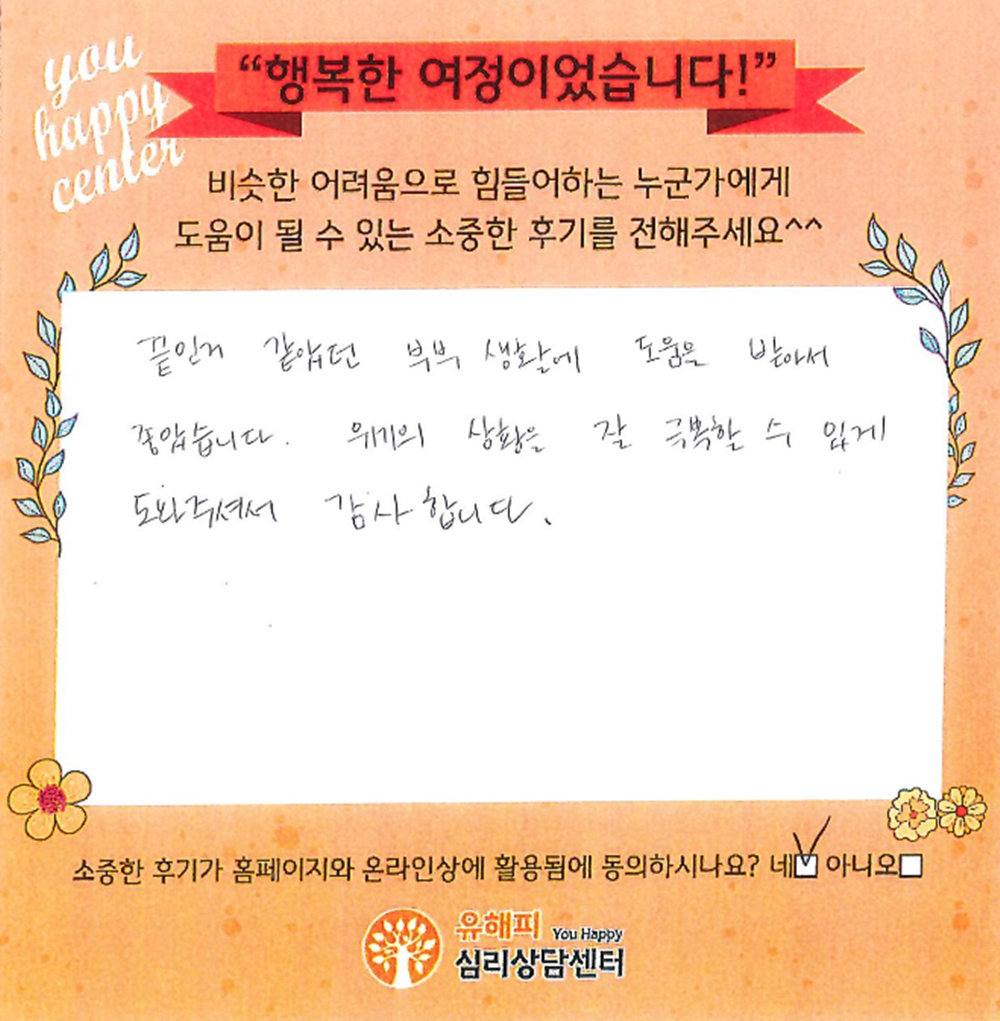 you
happy
center
“행복한 여정이었습니다!”
비슷한 어려움으로 힘들어하는 누군가에게
도움이 될 수 있는 소중한 후기를 전해주세요^^
끝인거 같았던 부부 생활에 도움을 받아서
좋았습니다. 위기의 상황을 잘 극복할 수 있게
도와주셔서 감사합니다.
소중한 후기가 홈페이지와 온라인상에 활용됨에 동의하시나요? 네☑ 아니오☐
유해피 You Happy
심리상담센터